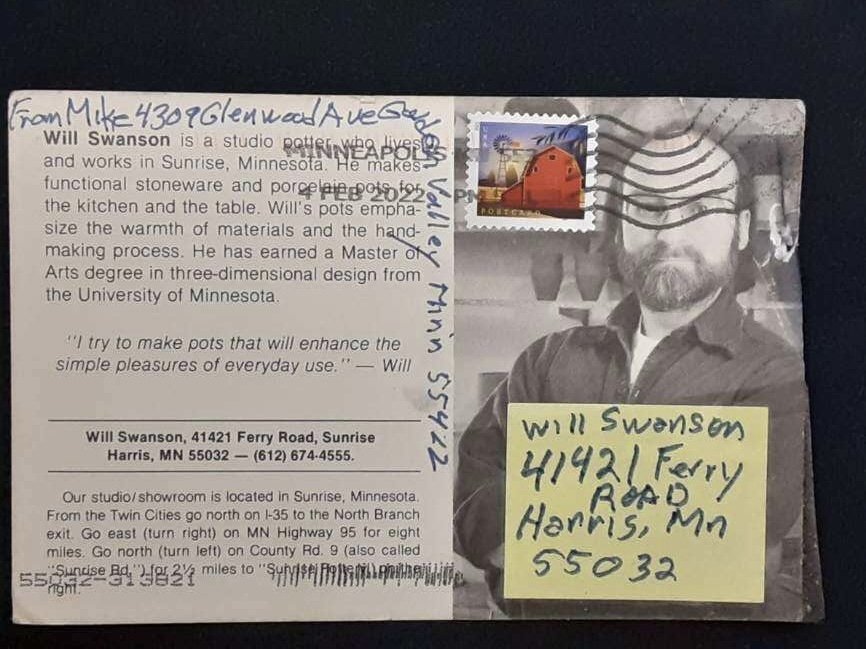 From Mike 4309 Glenwood Ave Golden Valley Minn 55422
Will Swanson is a studio potter who lives
and works in Sunrise, Minnesota. He makes
functional stoneware and porcelain pots for
the kitchen and the table. Will's pots empha-
size the warmth of materials and the hand-
making process. He has earned a Master of
Arts degree in three-dimensional design from
the University of Minnesota.
"I try to make pots that will enhance the
simple pleasures of everyday use." — Will
Will Swanson, 41421 Ferry Road, Sunrise
Harris, MN 55032 — (612) 674-4555.
Our studio/showroom is located in Sunrise, Minnesota.
From the Twin Cities go north on I-35 to the North Branch
exit. Go east (turn right) on MN Highway 95 for eight
miles. Go north (turn left) on County Rd. 9 (also called
"Sunrise Rd.") for 2½ miles to "Sunrise Pottery" on the
right.
55032-313821
MINNEAPOLIS
4 FEB 2022 PM
USA
POSTCARD
Will Swanson
41421 Ferry
ROAD
Harris, Mn
55032